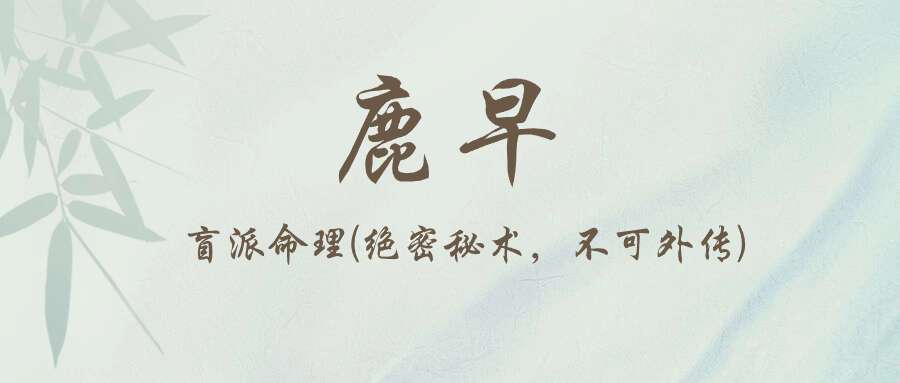 鹿早
盲派命理(绝密秘术，不可外传)